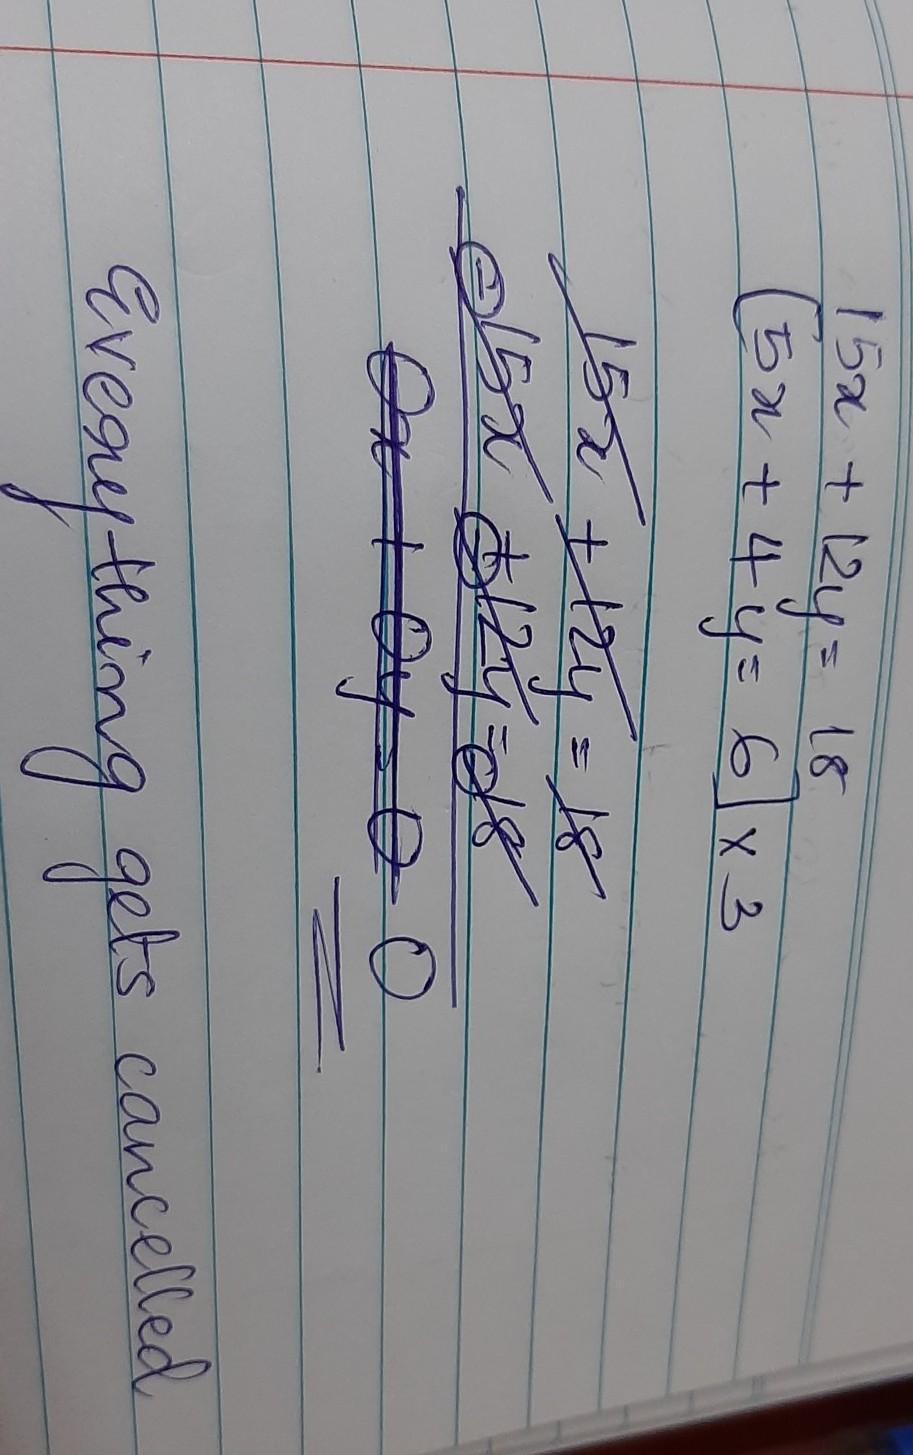 15x + 12y = 18
[5x + 4y = 6] x 3
15x + 12y = 18
⊖15x + 12y = 18
0x + 0y = 0 0
Everything gets cancelled